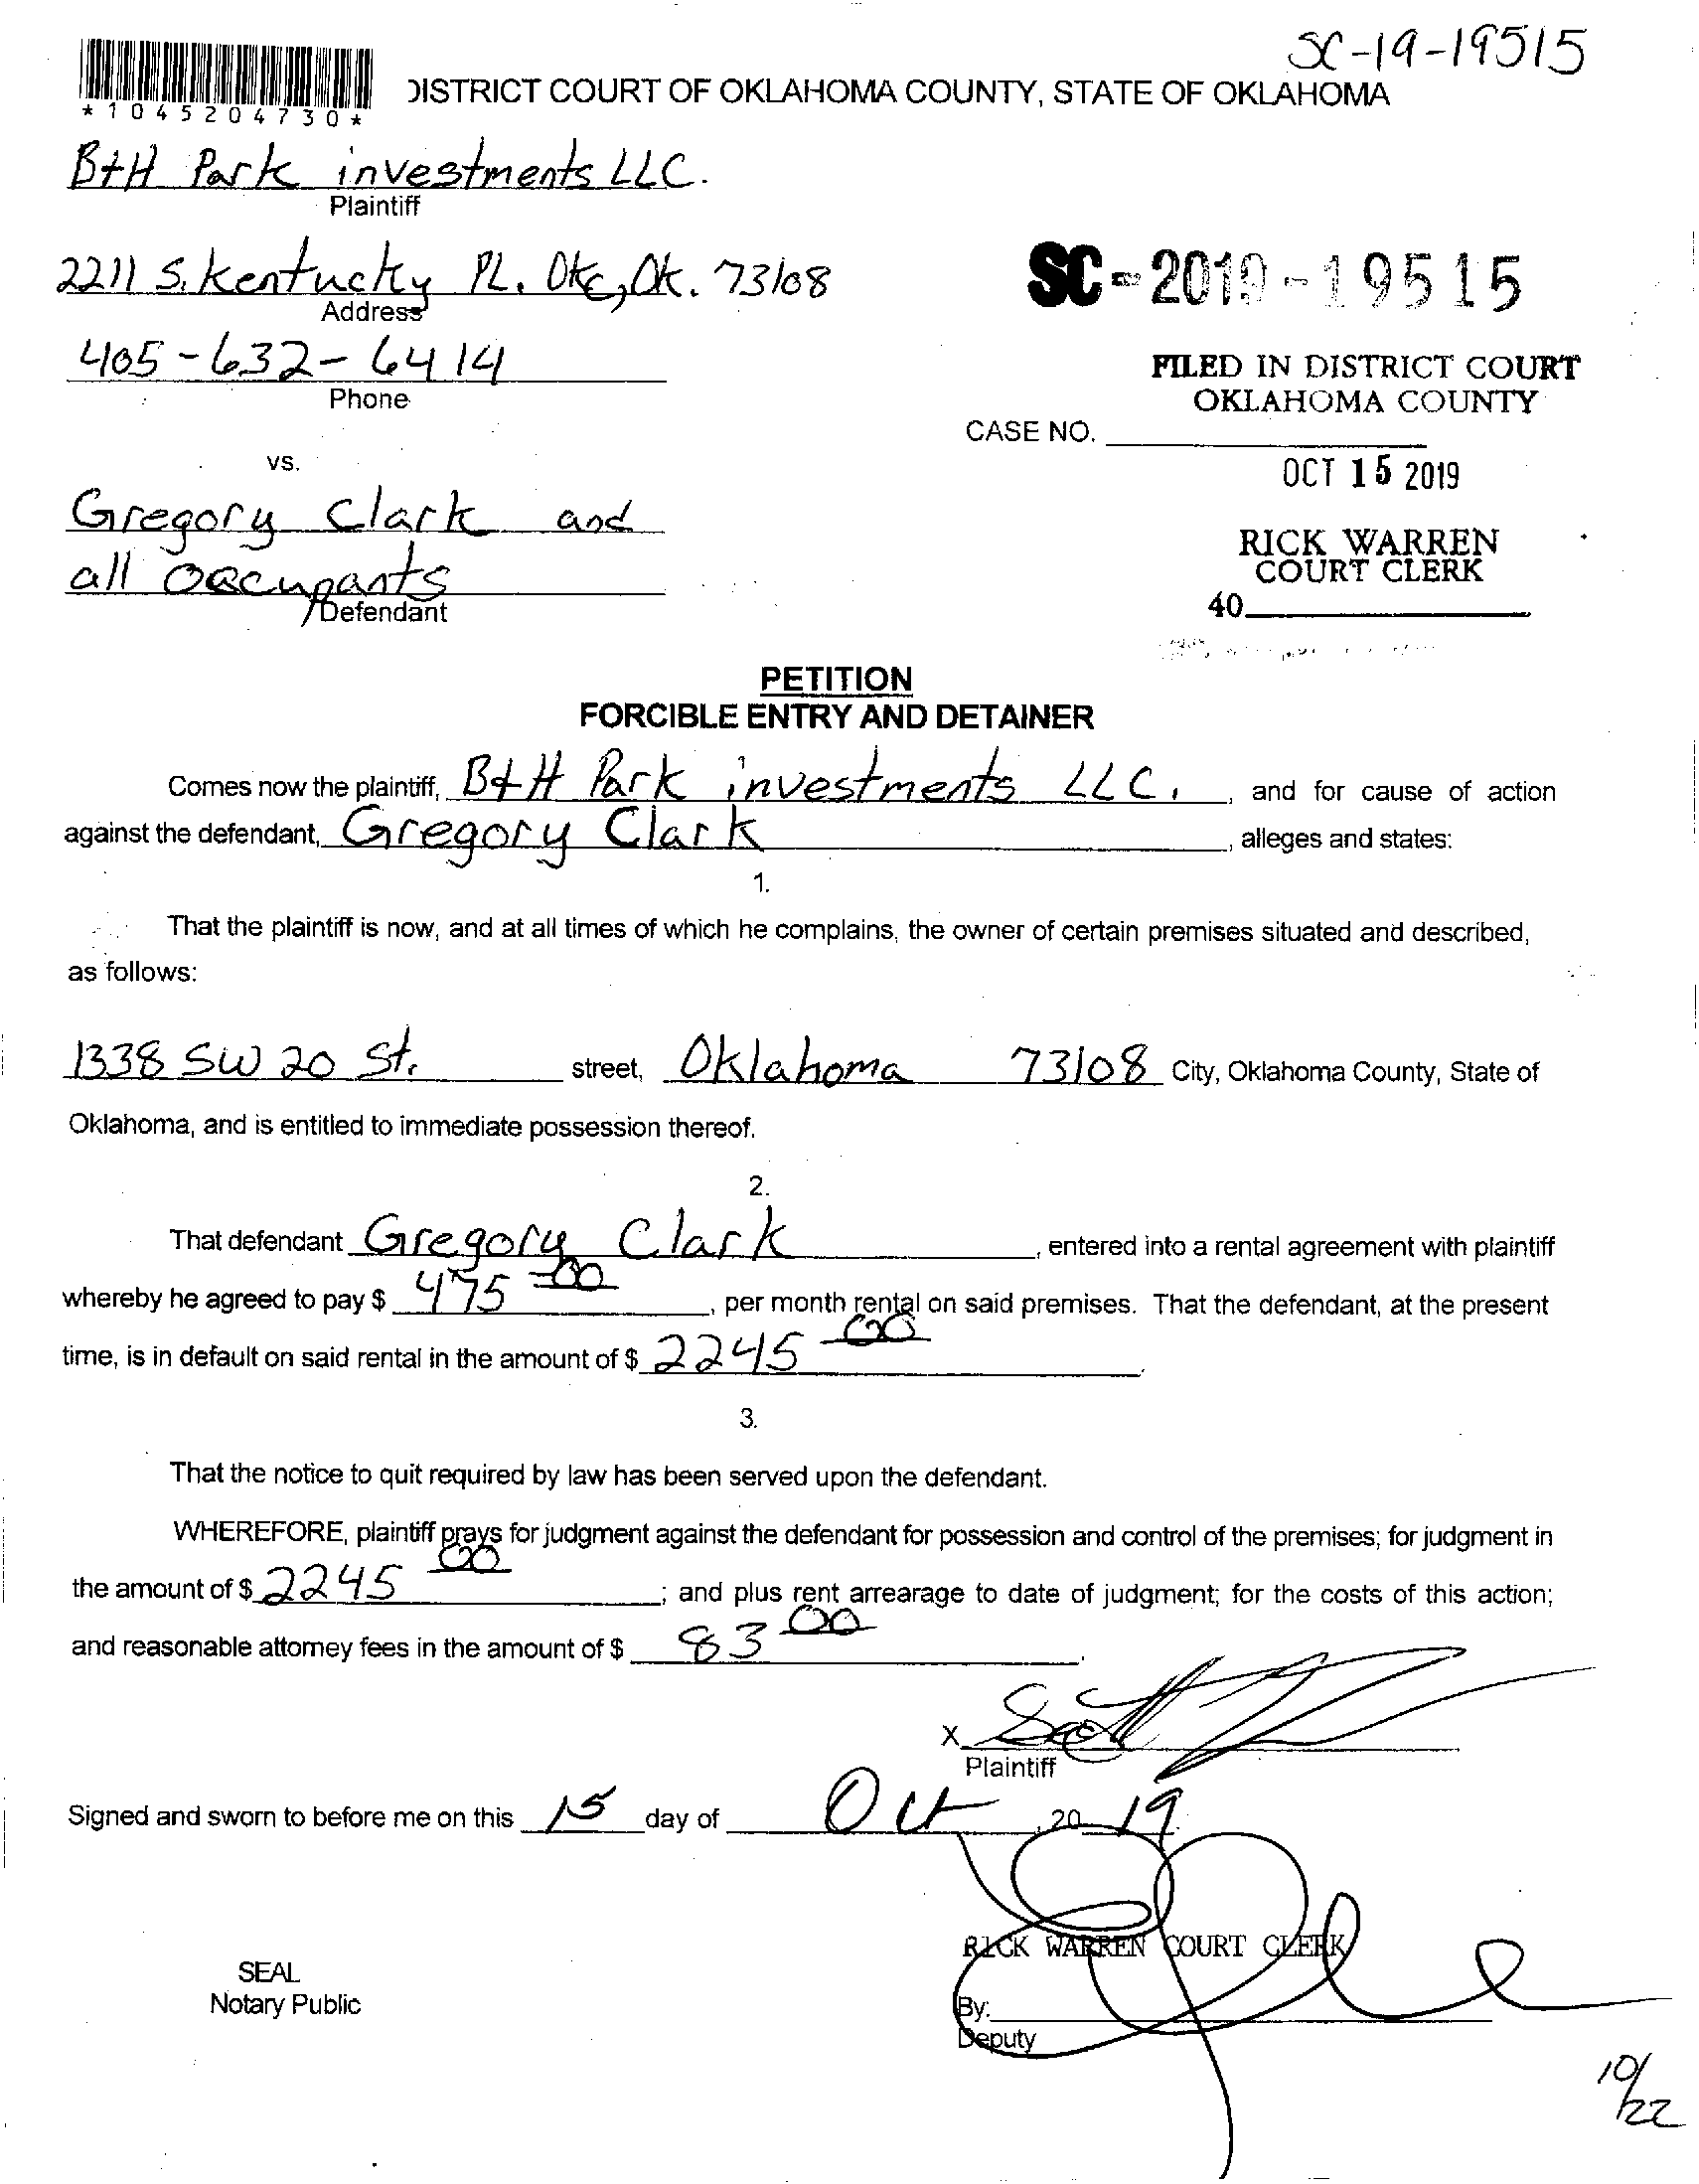 SC-19-19515
*1045204730*
DISTRICT COURT OF OKLAHOMA COUNTY, STATE OF OKLAHOMA
B+H Park investments LLC.
Plaintiff
2211 S. Kentucky PL. Okc, Ok. 73108
Address
SC-2019-19515
405-632-6414
Phone
FILED IN DISTRICT COURT
OKLAHOMA COUNTY
CASE NO.
vs.
OCT 15 2019
Gregory Clark and
all occupants
Defendant
RICK WARREN
COURT CLERK
40
PETITION
FORCIBLE ENTRY AND DETAINER
Comes now the plaintiff, B+H Park investments LLC., and for cause of action
against the defendant, Gregory Clark, alleges and states:
1.
That the plaintiff is now, and at all times of which he complains, the owner of certain premises situated and described,
as follows:
1338 SW 20 St. street, Oklahoma 73108 City, Oklahoma County, State of
Oklahoma, and is entitled to immediate possession thereof.
2.
That defendant Gregory Clark, entered into a rental agreement with plaintiff
whereby he agreed to pay $ 475 00, per month rental on said premises. That the defendant, at the present
time, is in default on said rental in the amount of $ 2245 00.
3.
That the notice to quit required by law has been served upon the defendant.
WHEREFORE, plaintiff prays for judgment against the defendant for possession and control of the premises; for judgment in
the amount of $ 2245 00; and plus rent arrearage to date of judgment; for the costs of this action;
and reasonable attorney fees in the amount of $ 83 00.
X
Plaintiff
Signed and sworn to before me on this 15 day of Oct, 20 19.
RICK WARREN COURT CLERK
SEAL
Notary Public
By:
Deputy
10/22